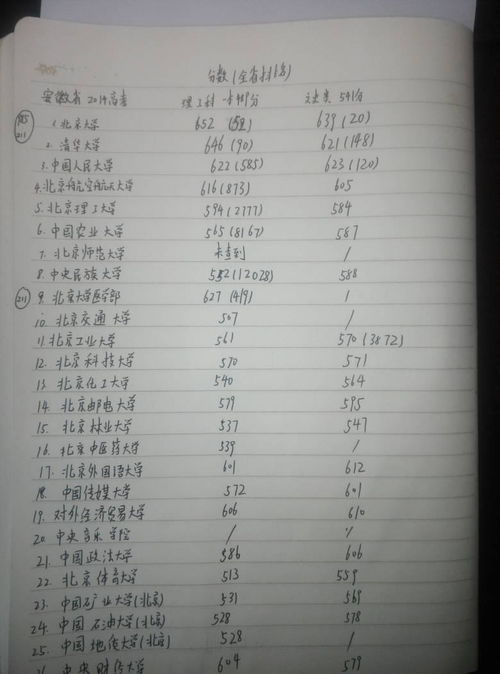 分数(全省排名)
安徽省2014高考 理工科 一本489分 文史类 541分
985 211
1.北京大学 652 (52) 639(20)
2.清华大学 646(90) 621(148)
3.中国人民大学 622(585) 623(120)
4.北京航空航天大学 616(873) 605
5.北京理工大学 594(2177) 584
6.中国农业大学 565(8167) 587
7.北京师范大学 未查到 /
8.中央民族大学 552(12028) 588
211 9.北京大学医学部 627(419) /
10.北京交通大学 507 /
11.北京工业大学 561 570(3872)
12.北京科技大学 570 571
13.北京化工大学 540 564
14.北京邮电大学 579 595
15.北京林业大学 537 547
16.北京中医药大学 539 /
17.北京外国语大学 601 612
18.中国传媒大学 572 601
19.对外经济贸易大学 606 610
20.中央音乐学院 / /
21.中国政法大学 586 606
22.北京体育大学 513 559
23.中国矿业大学(北京) 531 569
24.中国石油大学(北京) 528 578
25.中国地质大学(北京) 528 /
中央财经大学 604 579